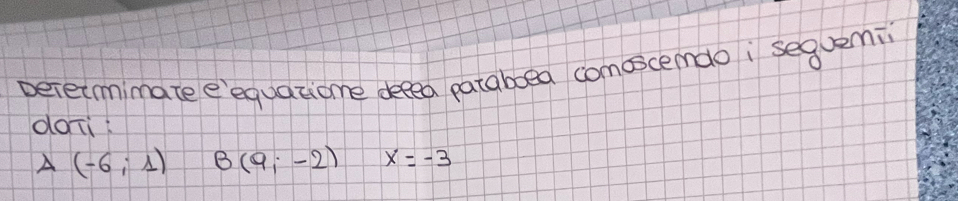 Determinate l'equazione della parabola conoscendo i seguenti
dati:
A (-6; 1) B (9; -2) x = -3